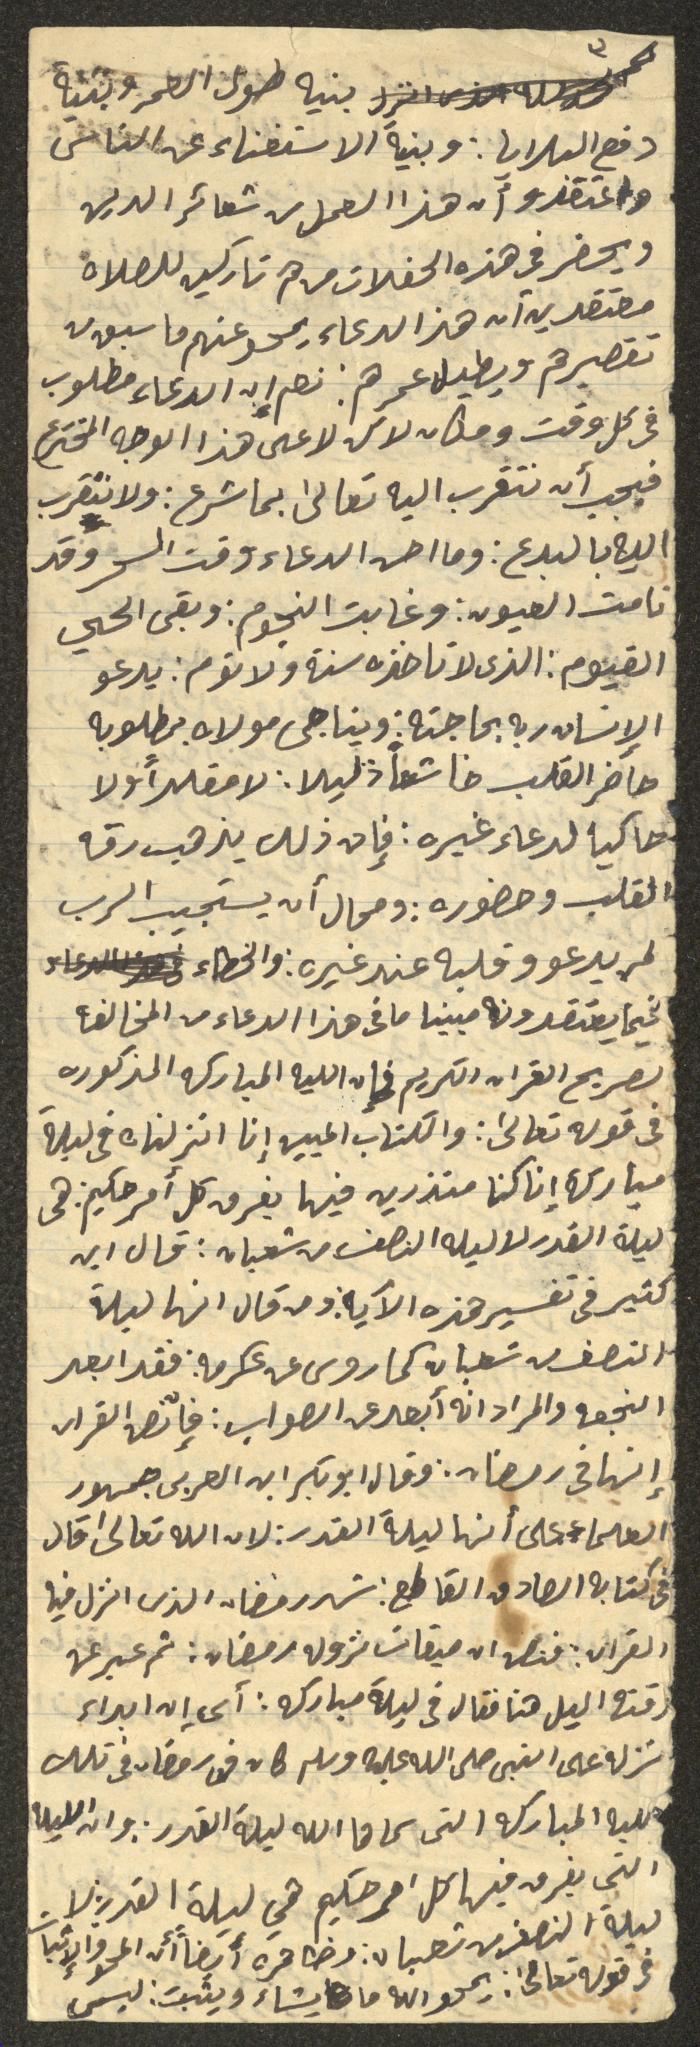 ٣
بنيه طول العمر وبنية
دفع البلايا : وبنية الاستغناء عن الناس
واعتقدو أن هذا العمل من شعائر الدين
ويحضر في هذه الحفلات من هم تاركين للصلاه
معتقدين أن هذا الدعاء يمحو عنهم ما سبق من
تقصيرهم ويطيل عمرهم : نعم إن الدعاء مطلوب
فى كل وقت ومكان لاكن لا على هذا الوجه المخترع
فيجب أن نتقرب اليه تعالىٰ بما شرع : ولا نتقرب
اليه بالبدع : وما احسن الدعاء وقت السحر وقد
نامت العيون : وغابت النجوم : وبقى الحي
القيوم : الذى لا تاخذه سنة ولا نوم : يدعو
الإنسان ربه بحاجته : ويناجى مولاه بمطلوبه
حاضر القلب خاشعاً ذليلا : لا مقلداً ولا
حاكيا لدعاء غيره : فإن ذلك يذهب رقه
القلب وحضوره : ومحال أن يستجيب الرب
لمن يدعو وقلبه عند غيره : والخطاء
فيما يعتقدونه مبينا ما فى هذا الدعاء من المخالفه
لصريح القران الكريم فإن الليه المباركه المذكوره
فى قوله تعالىٰ : والكتاب المبين إنا انزلناه فى ليلة
مباركة إنا كنا منذرين فيها يفرق كل أمر حكيم : هى
ليلة القدر لا ليله النصف من شعبان : قال ابن
كثير فى تفسير هذه الآية : ومن قال انها ليلة
النصف من شعبان كما روى عن عكرمه : فقد ابعد
النجعه والمراد انه أبعد عن الصواب : فإن نص القران
إنها فى رمضان : وقال ابو بكر ابن العربى جمهور
العلماء على أنها ليلة القدر : لان الله تعالىٰ قال
فى كتابه الصادق القاطع : شهر رمضان الذى انزل فيه
القران : فنص ان ميقات نزوله رمضان : ثم عبر عن
وقته اليل هنا فقال فى ليلة مباركه : أى إن ابداء
نزله على النبى صلى الله عليه وسلم كان فى رمضان فى تلك
الليه المباركه التى سماها الله ليلة القدر : وان الليله
التى يفرق فيها كل امر حكيم هي ليلة القدر : لا
ليلة النصف من شعبان : وظاهره أيضاً أن المحو والإثبات
فى قوله تعالىٰ : يمحو الله ما يشاء ويثبت : ليس